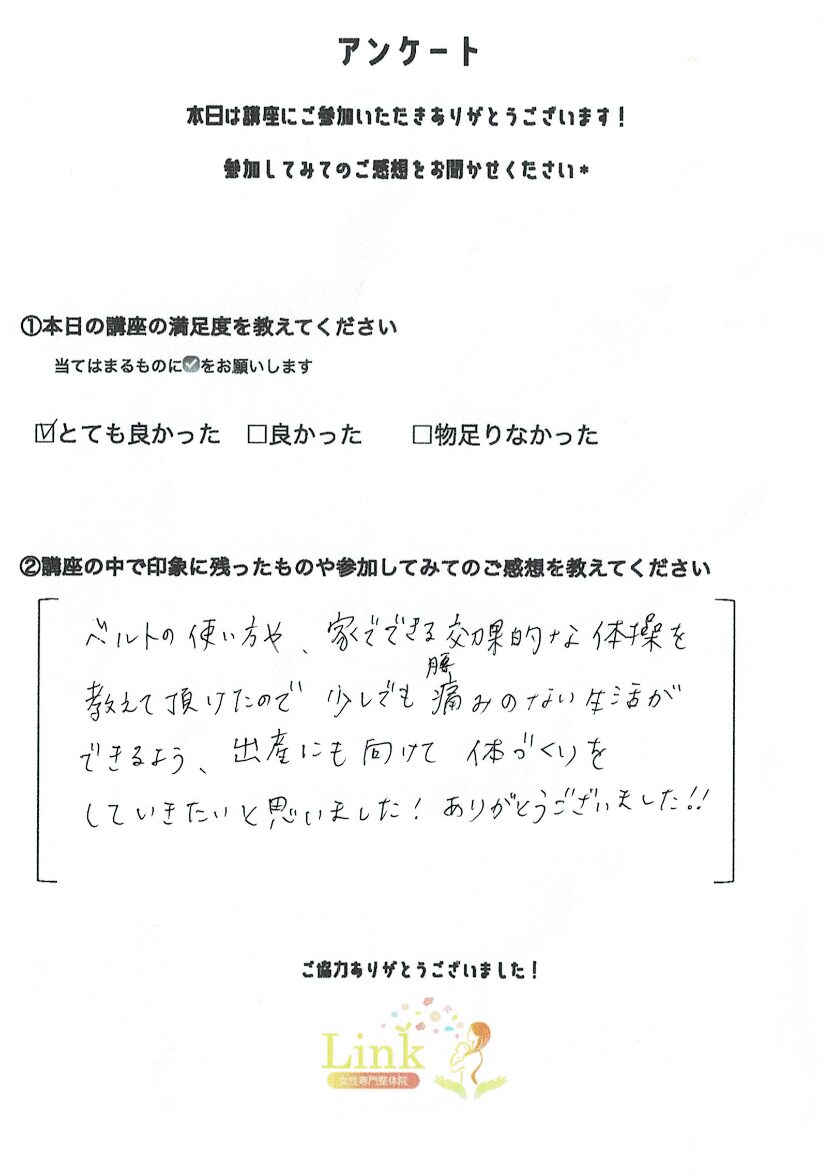 アンケート
本日は講座にご参加いただきありがとうございます！
参加してみてのご感想をお聞かせください*
①本日の講座の満足度を教えてください
当てはまるものに✅をお願いします
☑とても良かった □良かった □物足りなかった
②講座の中で印象に残ったものや参加してみてのご感想を教えてください
ベルトの使い方や、家でできる効果的な体操を
教えて頂けたので少しでも腰痛みのない生活が
できるよう、出産にも向けて体づくりを
していきたいと思いました！ありがとうございました!!
ご協力ありがとうございました！
Link
女性専門整体院